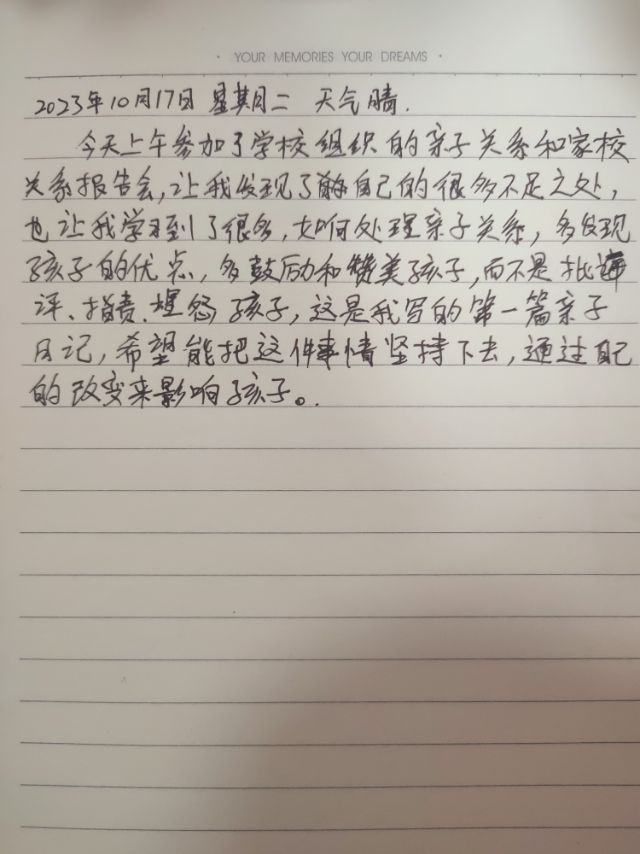 · YOUR MEMORIES YOUR DREAMS ·
2023年10月17日 星期二 天气晴.
今天上午参加了学校组织的亲子关系和家校
关系报告会,让我发现了自己的很多不足之处,
也让我学习到了很多,如何处理亲子关系,多发现
孩子的优点,多鼓励和赞美孩子,而不是批
评、指责、埋怨孩子,这是我写的第一篇亲子
日记,希望能把这件事情坚持下去,通过自己
的改变来影响孩子。